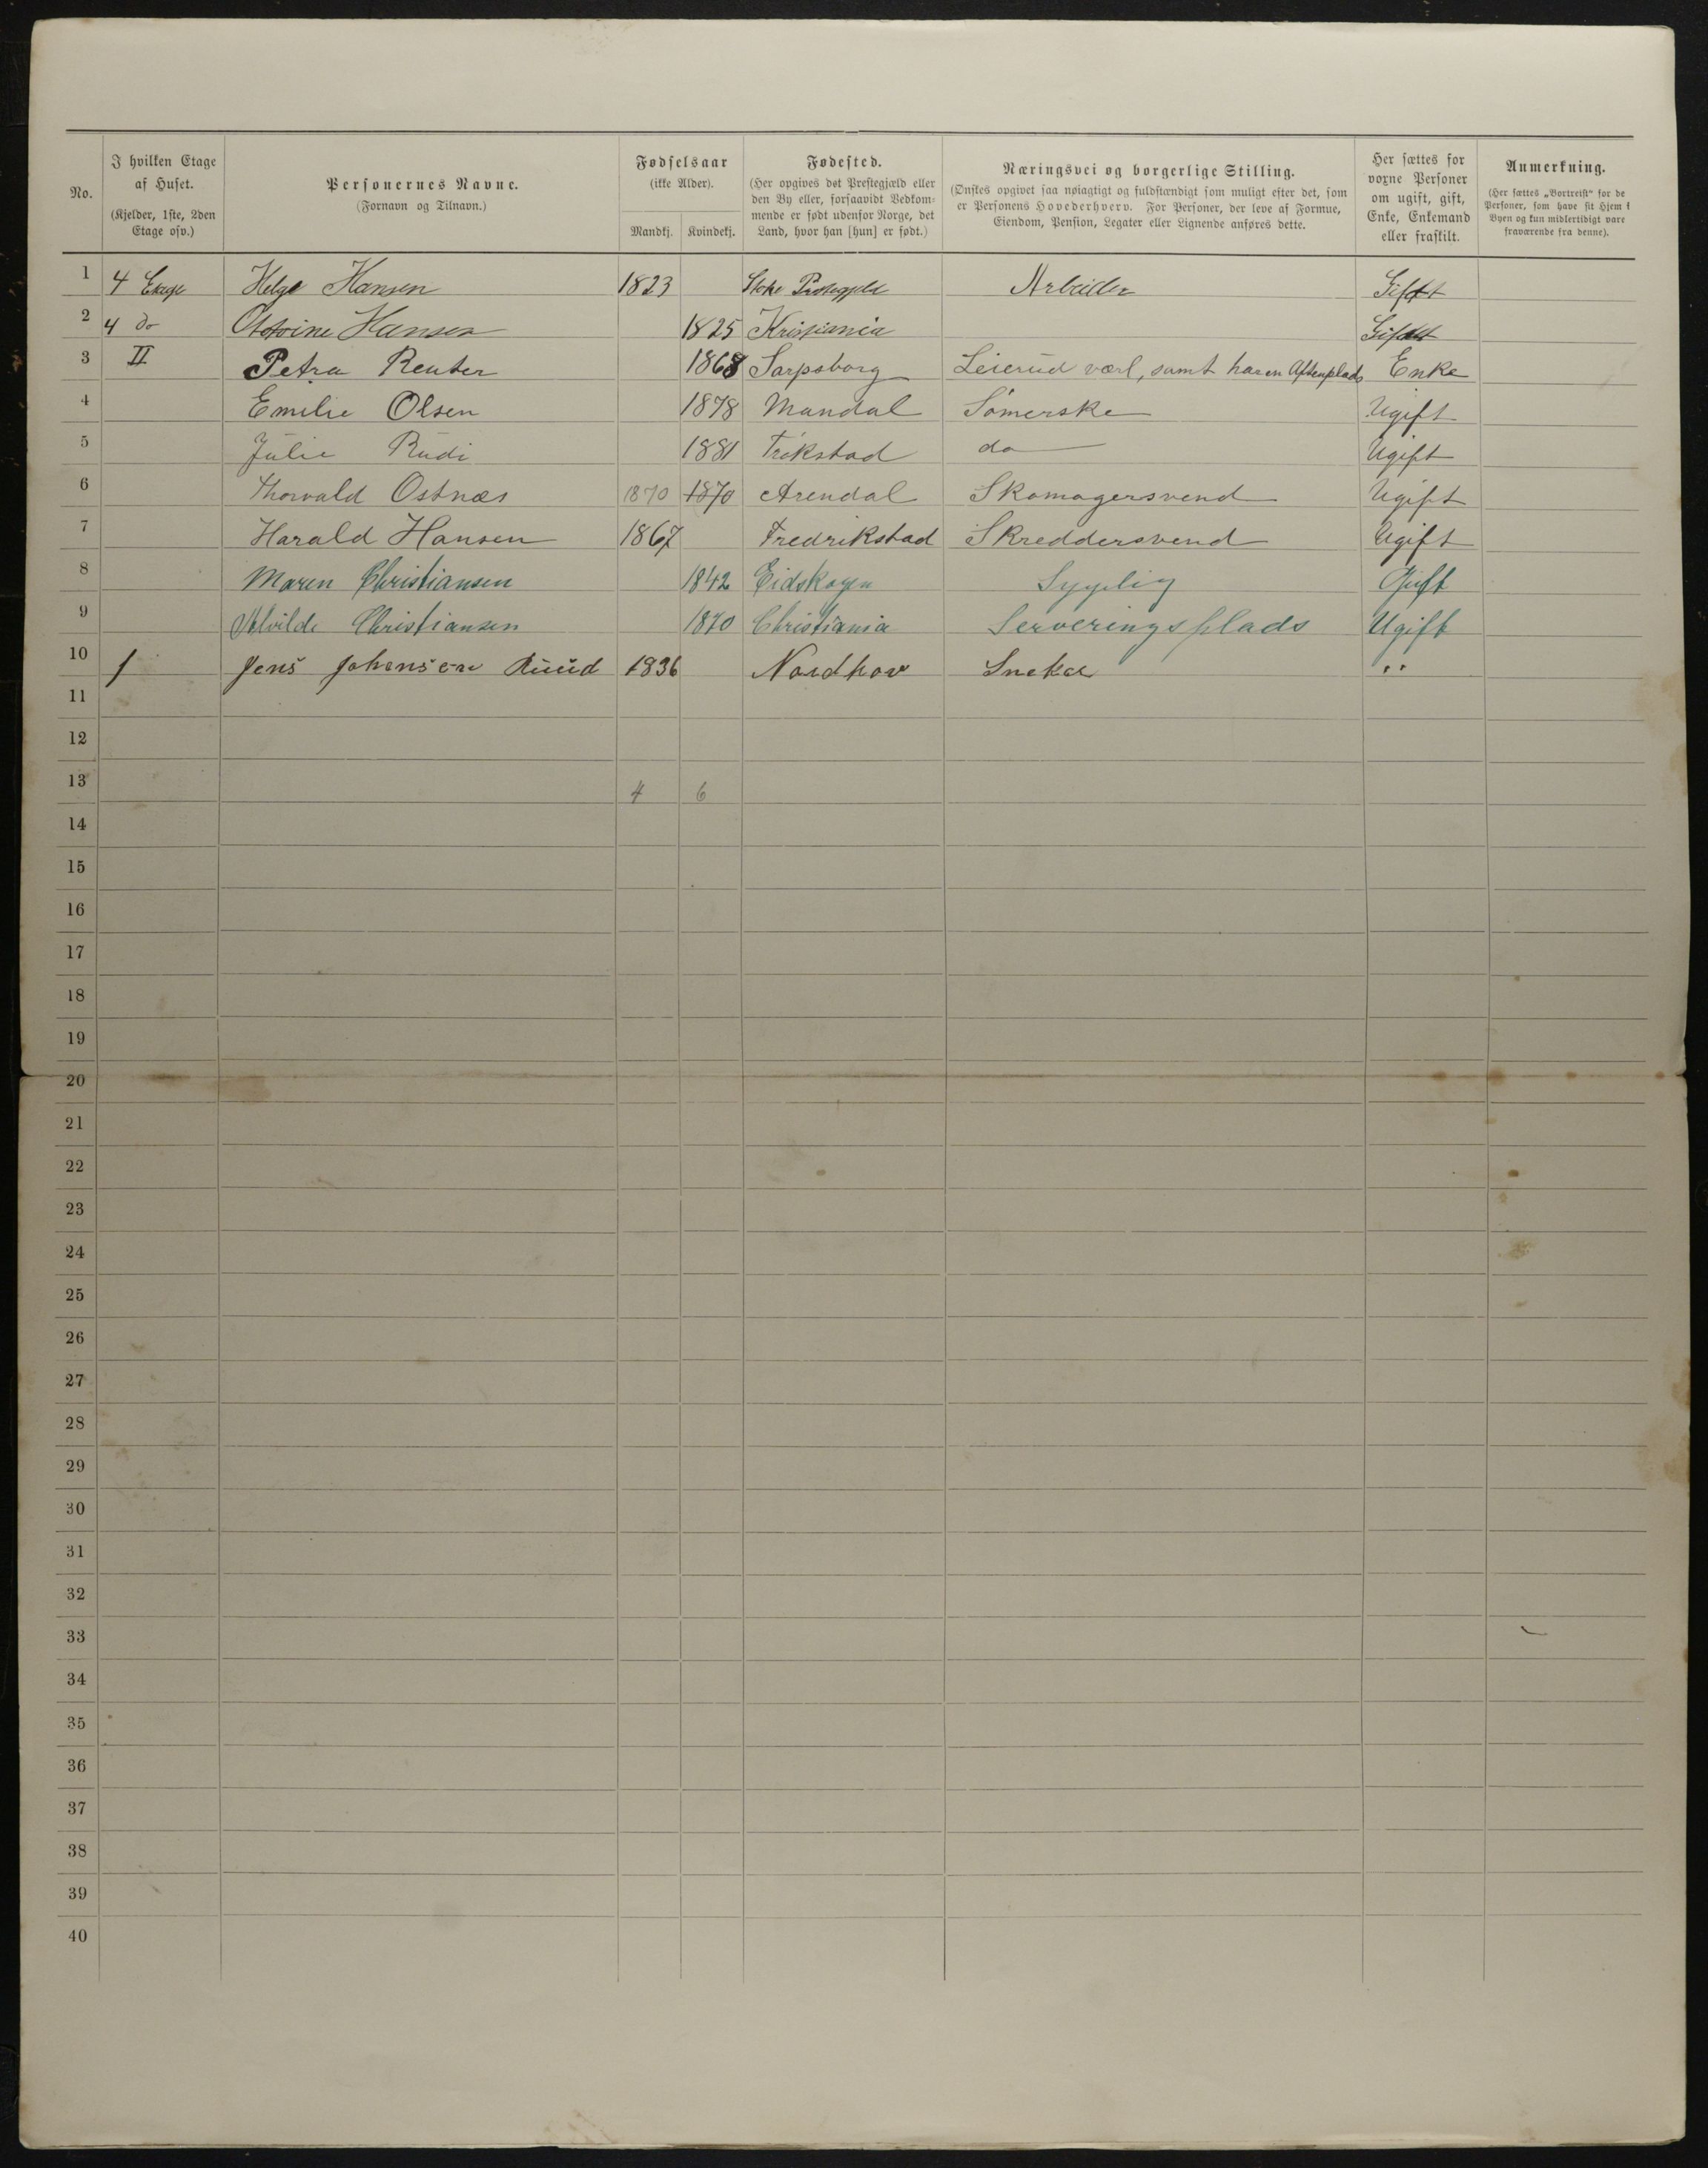 No.
I hvilken Etage af Huset.
(Kjelder, 1ste, 2den Etage osv.)
Personernes Navne.
(Fornavn og Tilnavn.)
Fødselsaar
(ikke Alder).
Mandkj. Kvindekj.
Fødested.
(Her opgives det Prestegjæld eller
den By eller, forsaavidt Vedkom-
mende er født udenfor Norge, det
Land, hvor han [hun] er født.)
Næringsvei og borgerlige Stilling.
(Ønskes opgivet saa nøiagtigt og fuldstændigt som muligt efter det, som
er Personens Hovederhverv. For Personer, der leve af Formue,
Eiendom, Pension, Legater eller Lignende anføres dette.
Her sættes for
voxne Personer
om ugift, gift,
Enke, Enkemand
eller fraskilt.
Anmerkning.
(Her sættes „Bortreist“ for de
Personer, som have sit Hjem i
Byen og kun midlertidigt vare
fraværende fra denne).
1 4 Etage Helge Hansen 1823 Arbeider Gift
2 4 do Hansen 1825 Kristiania Gift
3 II Petra Reuter 1868 Sarpsborg Leierud værl, samt har en Aftenplads Enke
4 Emilie Olsen 1878 Mandal Sömerske Ugift
5 Julie Rudi 1881 Trökstad do Ugift
6 Thorvald Ostnæs 1870 1870 Arendal Skomagersvend Ugift
7 Harald Hansen 1867 Fredrikstad Skreddersvend Ugift
8 Maren Christiansen 1842 Eidskogen Sygelig Gift
9 Alvilde Christiansen 1870 Christiania Serveringsplads Ugift
10 1 Jens Johansen Ruud 1836 Nordhov Sneker ,,
11
12
13 4 6
14
15
16
17
18
19
20
21
22
23
24
25
26
27
28
29
30
31
32
33
34
35
36
37
38
39
40